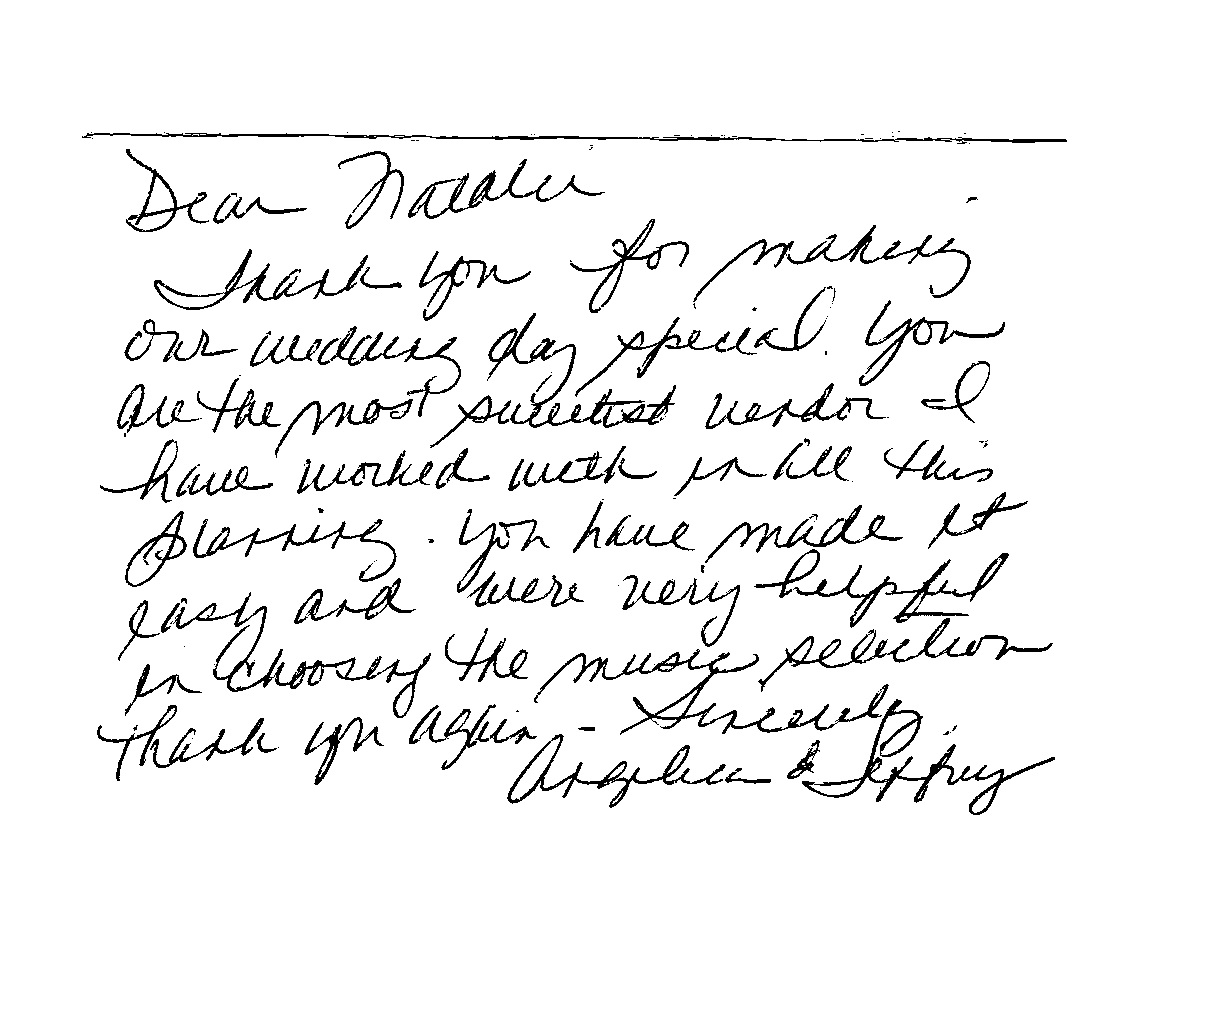 Dear Natalie
Thank you for making
our wedding day special. You
are the most sweetest vendor I
have worked with in all this
planning. You have made it
easy and were very helpful
in choosing the music selection
thank you again - Sincerely,
Angelica & Jeffrey